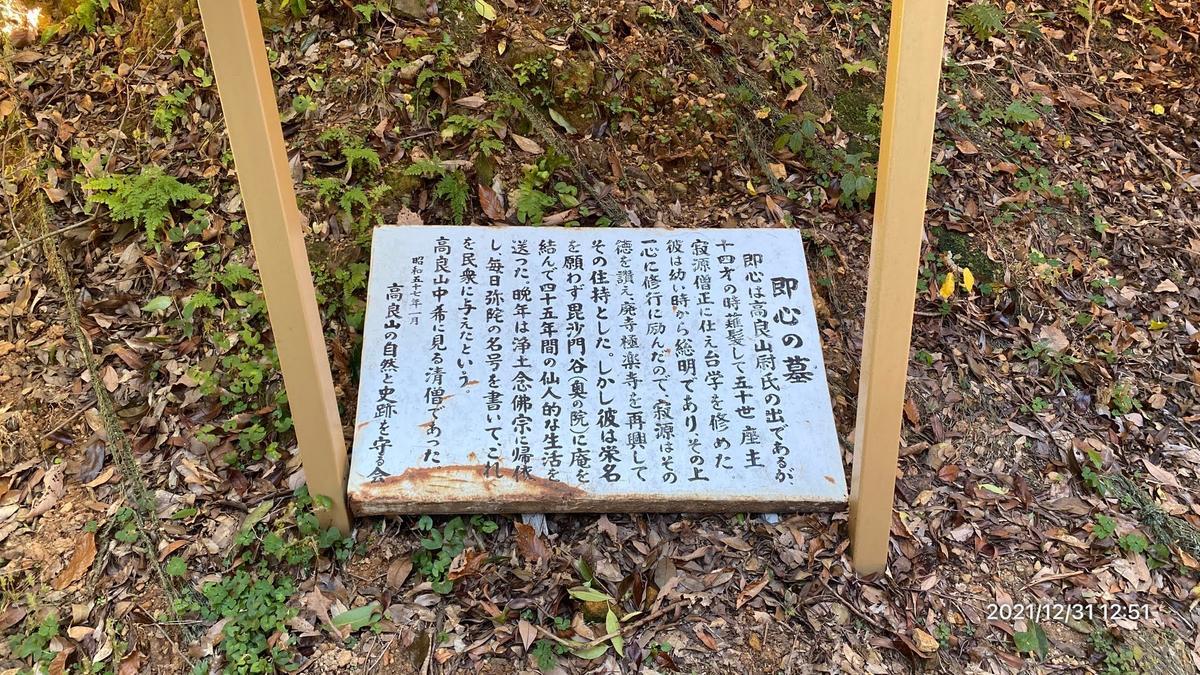 即心の墓
即心は高良山尉氏の出であるが
十四才の時薙髪して五十世座主
寂源僧正に仕え台学を修めた
彼は幼い時から総明でありその上
一心に修行に励んだので、寂源はその
徳を讃え廃寺極楽寺を再興して
その住持とした。しかし彼は栄名
を願わず毘沙門谷(奥の院)に庵を
結んで四十五年間の仙人的な生活を
送った。晩年は浄土念佛宗に帰依
し毎日弥陀の名号を書いて、これ
を民衆に与えたという。
高良山中希に見る清僧であった。
昭和五十七年一月
高良山の自然と史跡を守る会
2021/12/31 12:51